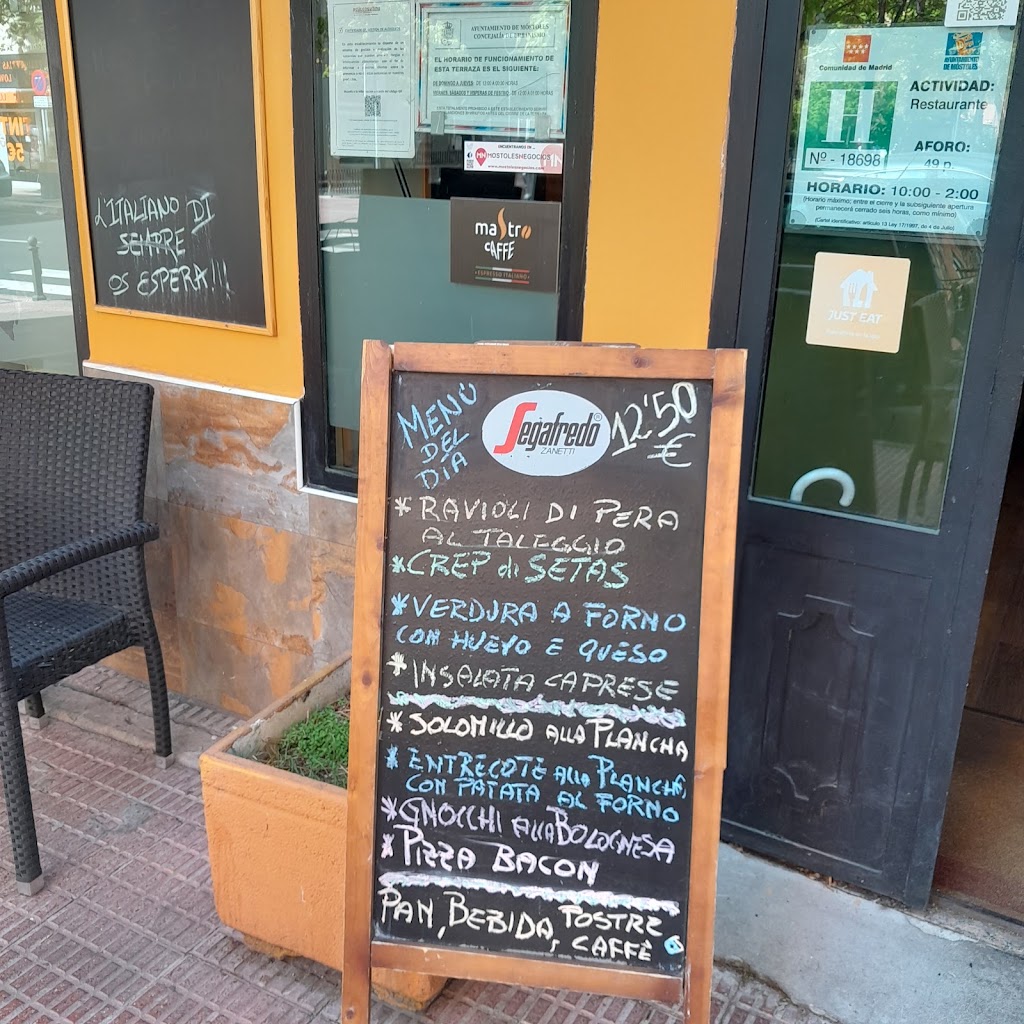 L'ITALIANO DI
SEMPRE
OS ESPERA!!!
AYUNTAMIENTO DE MÓSTOLES
EL HORARIO DE FUNCIONAMIENTO DE
ESTA TERRAZA ES EL SIGUIENTE:
ENCUÉNTRANOS EN ...
MOSTOLESNEGOCIOS
www.mostolesnegocios.com
mastro
CAFFÈ
ESPRESSO ITALIANO
Comunidad de Madrid
AYUNTAMIENTO
DE MÓSTOLES
ACTIVIDAD:
Restaurante
Nº - 18698
AFORO:
49 p.
HORARIO: 10:00 - 2:00
(Horario máximo; entre el cierre y la subsiguiente apertura
permanecerá cerrado seis horas, como mínimo)
(Cartel identificativo: artículo 13 Ley 17/1997, de 4 de Julio)
JUST EAT
MENÙ
DEL
DÍA
Segafredo
ZANETTI
12'50
€
* RAVIOLI DI PERA
AL TALEGGIO
* CREP di SETAS
* VERDURA A FORNO
COM HUEVO E QUESO
* INSALATA CAPRESE
* SOLOMILLO ALLA PLANCHA
* ENTRECOTE ALLA PLANCHA,
CON PATATA AL FORNO
* GNOCCHI ALLA BOLOGNESA
* PIZZA BACON
PAN, BEBIDA, POSTRE
CAFFÈ